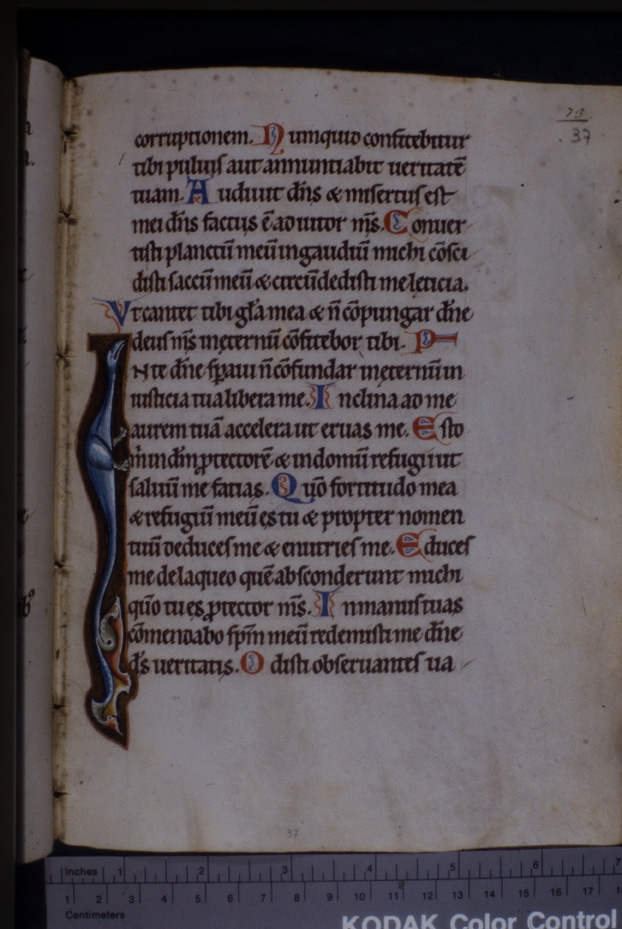 73
37
corruptionem. Numquid confitebitur
tibi puluis aut annuntiabit ueritatē
tuam. Audiuit dn̄s & misertus est
mei dn̄s factus ē adiutor m̄s. Conuer
tisti planctū meū ingaudiū michi cōsci
disti saccū meū & circūdedisti me leticia.
Vt cantet tibi gl̄a mea & n̄ cōpungar dn̄e
deus m̄s ineternū cōfitebor tibi.
INte dn̄e sp̄aui n̄ cōfundar ineternū in
iusticia tua libera me. Inclina ad me
aurem tuā accelera ut eruas me. Esto
m̄ in dm̄ ꝓtectorē & in domū refugii ut
saluū me facias. Qūo fortitudo mea
& refugiū meū es tu & propter nomen
tuū deduces me & enutries me. Educes
me delaqueo quē absconderunt michi
qūo tu es ꝓtector m̄s. Inmanus tuas
cōmendabo sp̄m meū redemisti me dn̄e
d̄s ueritatis. Odisti obseruantes ua
37
Inches 1 2 3 4 5 6 7
1 2 3 4 5 6 7 8 9 10 11 12 13 14 15 16 17
Centimeters
KODAK Color Control